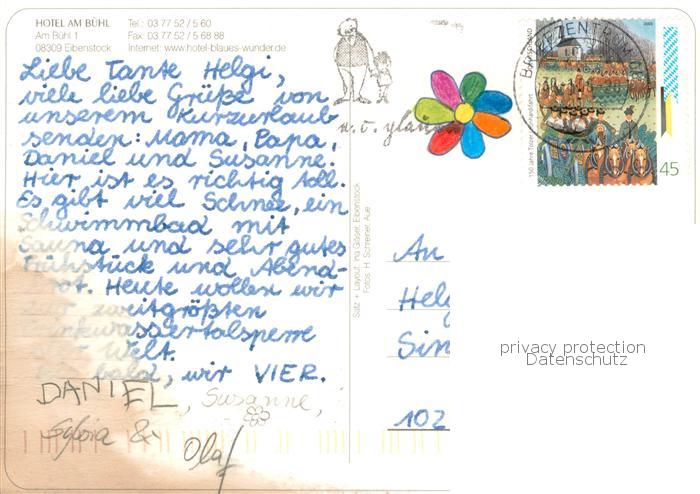 HOTEL AM BÜHL
Am Bühl 1
08309 Eibenstock
Tel.: 03 77 52 / 5 60
Fax: 03 77 52 / 5 68 88
Internet: www.hotel-blaues-wunder.de
Liebe Tante Helgi,
viele liebe Grüße von
unserem Kurzurlaub
senden: Mama, Papa,
Daniel und Susanne.
Hier ist es richtig toll.
Es gibt viel Schnee, ein
Schwimmbad mit
Sauna und sehr gutes
Frühstück und Abend-
rot. Heute wollen wir
zweitgrößten
inkwassertalsperre
Welt.
bald, wir VIER.
DANIEL, Susanne,
Sylvia &
Olaf
Satz + Layout: Ina Gläser, Eibenstock
Fotos: H. Schreiner, Aue
BRIEFZENTRUM
45
An
Helg
Sin
102
privacy protection
Datenschutz